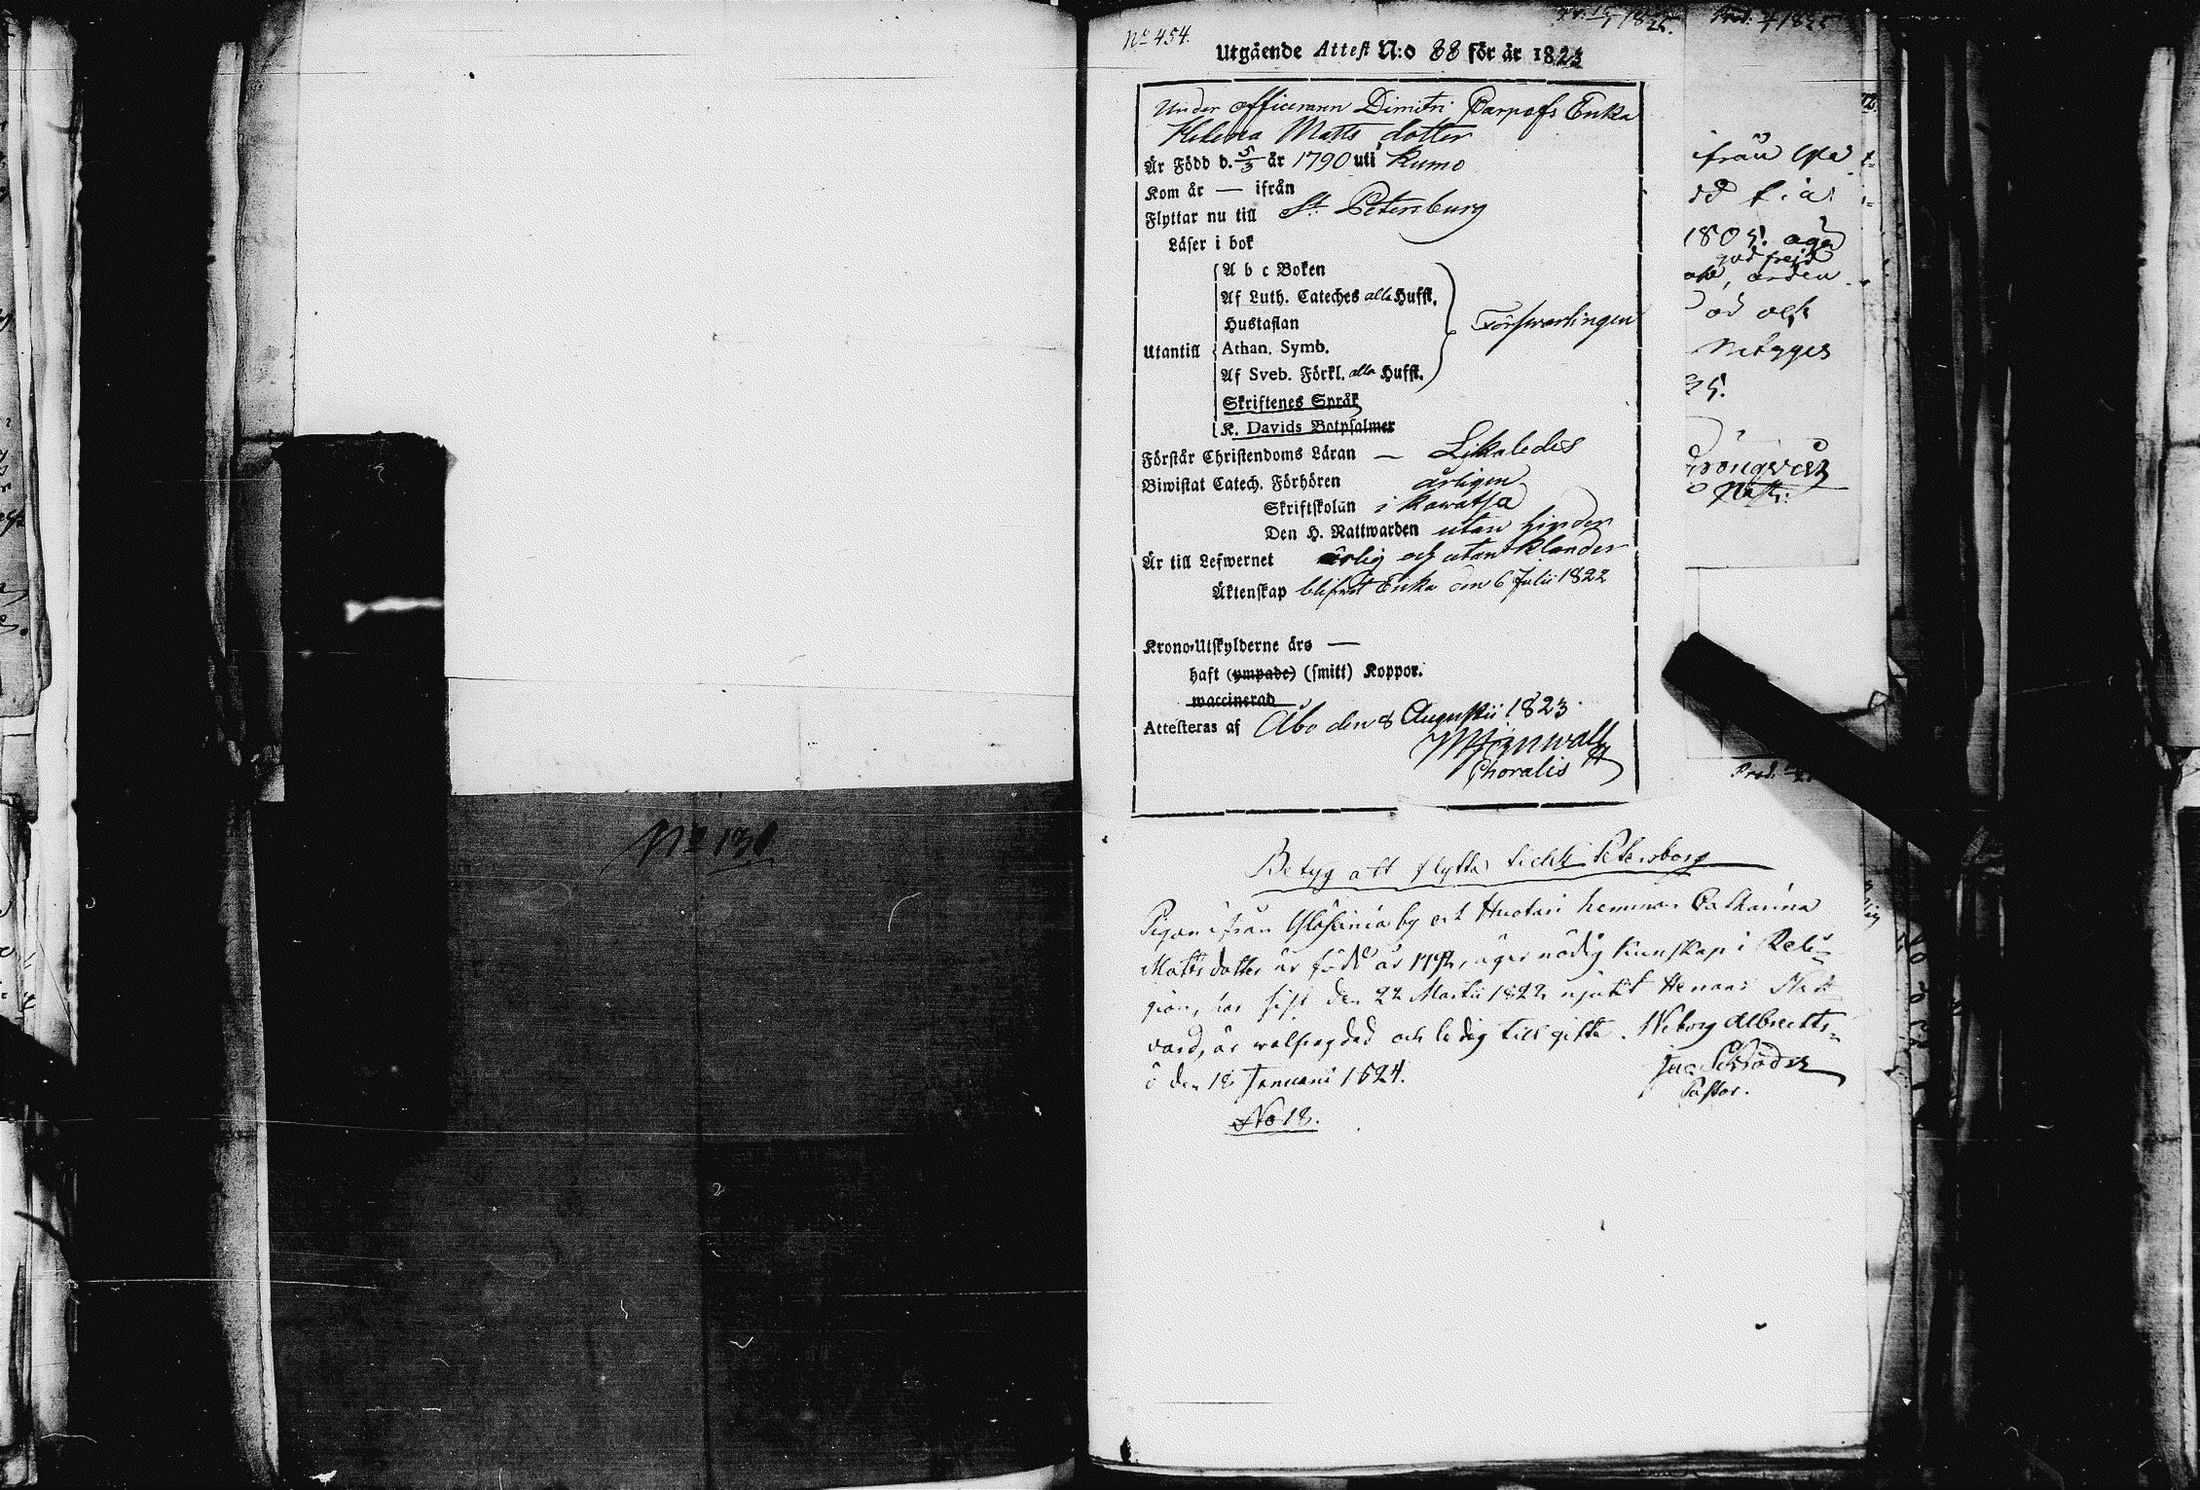 No 131
No 454.
Utgående Attest N:o 88 för år 1823
Under officeraren Dimitri Parpofs Enka
Helena Matts dotter
Är Född d. 5/3 år 1790 uti Kumo
Kom år — ifrån
Flyttar nu till St Petersburg
Läser i bok
A b c Boken
Af Luth. Cateches alla Hufst.
Hustaflan
Utantill Athan. Symb.
Af Sveb. Förkl. alla Hufst.
Förswarligen
Skriftenes Språk
K. Davids Botpsalmer
Förstår Christendoms Läran — Likaledes
Biwistat Catech. Förhören årligen
Skriftskolan i
Den H. Nattwarden utan hinder
Är till Lefwernet ärlig och utan klander
Äktenskap blifwit Enka den 6 Julii 1822
Krono-Utskylderne års —
haft (ympade) (smitt) Koppor.
waccinerad
Attesteras af Åbo den 8 Augustii 1823.
Choralis
Betyg att flytta till St Petersborg
Pigan ifrån by och hemman Catharina
Matts dotter är född år äger nödig kunskap i Reli-
gion, har sist den 22 Martii 1822 njutit Herrans Natt
vard, är wälfrägdad och ledig till gifte. Wiborg Albrechts-
o den 18 Januari 1824.
Schröder
Pastor.
No 18.
ifrån
1805. äga
god frejd
ord och
35.